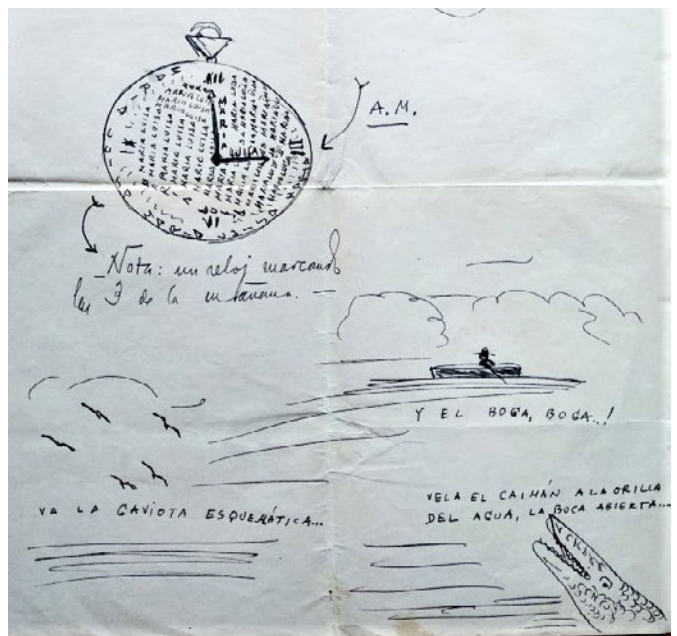 XII
MARIA LUISA
MARIA LUISA
MARIA LUISA
MARIA LUISA
MARIA LUISA
MARIA LUISA
III
VI
A.M.
Nota: un reloj marcando
las 3 de la mañana.
Y EL BOGA, BOGA..!
VA LA GAVIOTA ESQUEMÁTICA...
VELA EL CAIMÁN A LA ORILLA
DEL AGUA, LA BOCA ABIERTA...